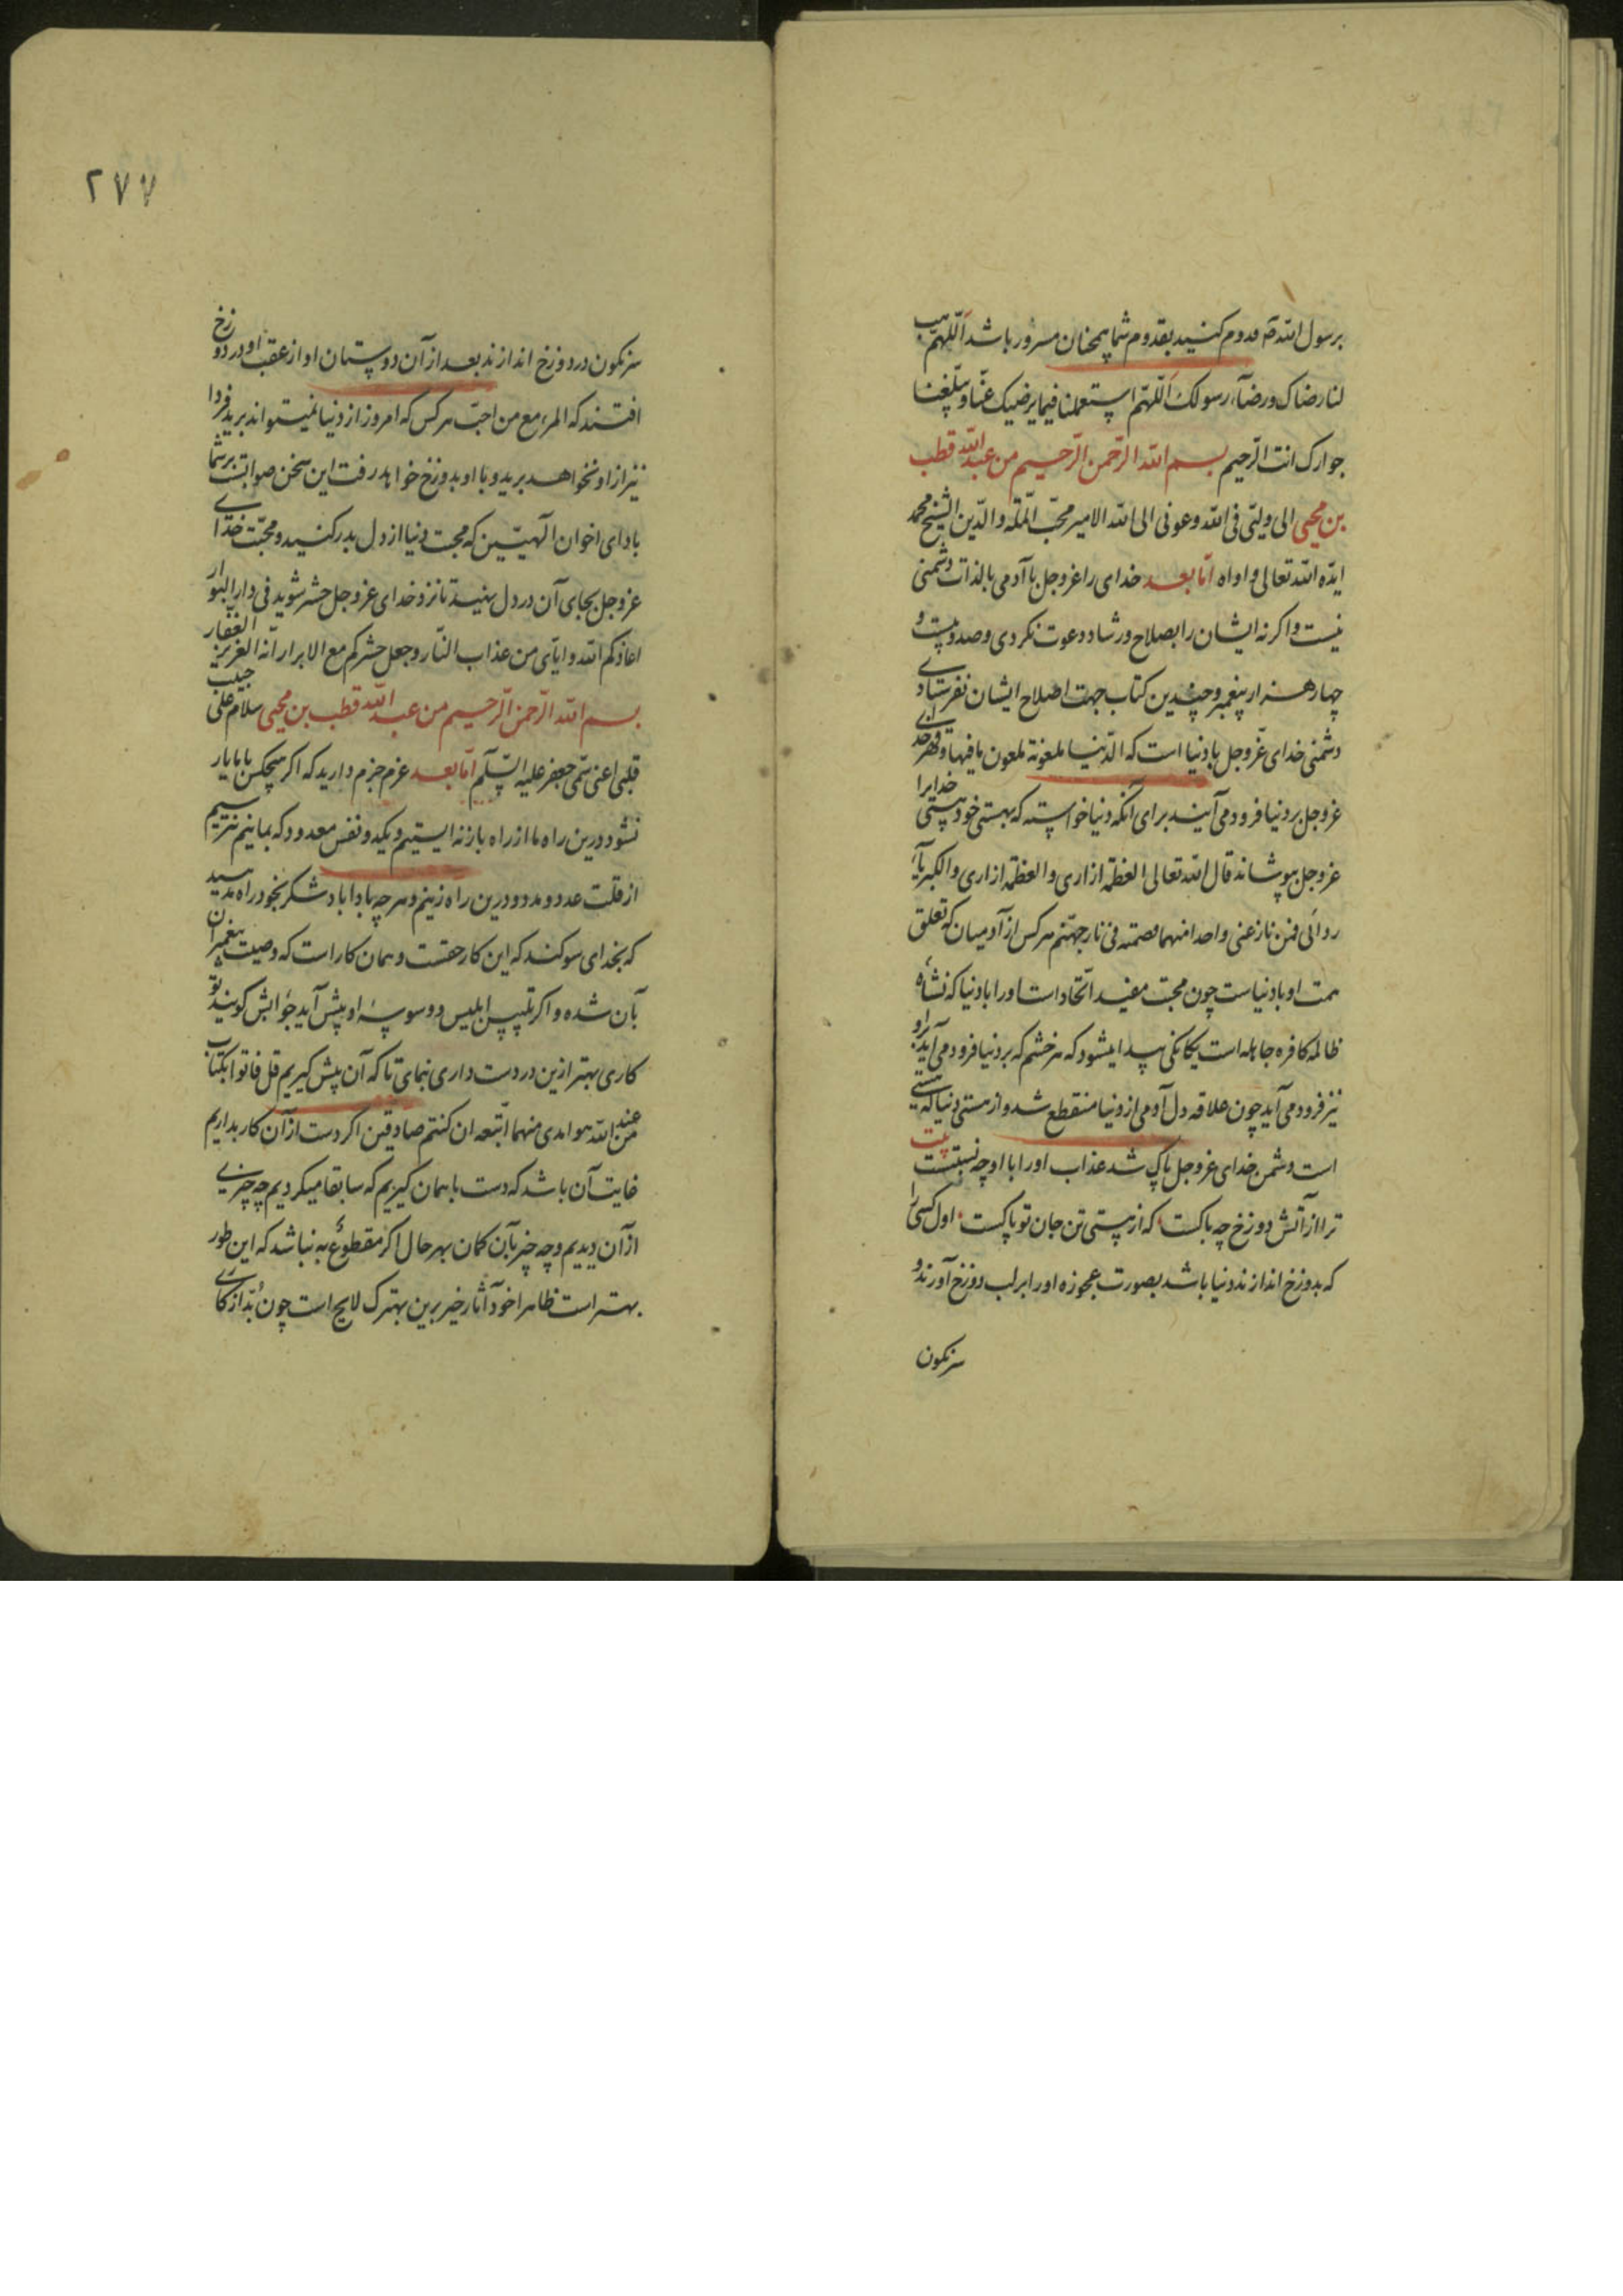 برسول الله ص قدوم کنید بقدوم شما همچنان مسرور باشد اللهم هب
لنا رضاک و رضاء رسولک اللهم استعملنا فیما یرضیک عنا و بلغنا
جوارک انت الرحیم بسم الله الرحمن الرحیم من عبدالله قطب
بن محیی الی ولیی فی الله و عونی الی الله الامیر محب المله والدین الشیخ محمد
ایده الله تعالی و اواه اما بعد خدای را عزوجل با آدمی بالذات دشمنی
نیست و اکرنه ایشان را بصلاح و رشاد دعوت نکردی و صد و بیست و
چهار هزار پیغمبر و چندین کتاب جهت اصلاح ایشان نفرستادی
دشمنی خدای عزوجل با دنیا است که الدنیا ملعونة ملعون ما فیها و قهر خدای
عزوجل بر دنیا فرود می آیند برای آنکه دنیا خواسته که بهستی خود هستی خدایرا
عزوجل بپوشاند قال الله تعالی العظمة ازاری والعظمة ازاری والکبریاء
ردائی فمن نازعنی واحدا منهما قصمته فی نار جهنم هر کس از آدمیان که تعلق
همت او با دنیاست چون محبت مفید اتحاد است او را با دنیا که نشاه
ظالمه کافره جاهله است یکانکی پیدا میشود که هر خشم که بر دنیا فرود می آید بر او
نیز فرود می آید چون علاقه دل آدمی از دنیا منقطع شد و از هستی دنیا که هستی
است دشمن خدای عزوجل پاک شد عذاب او را با او چه نسبتست بیت
ترا از آتش دوزخ چه باکست که از هستی تن جان تو پاکست اول کسی را
که بدوزخ اندازند دنیا باشد بصورت عجوزه او را بر لب دوزخ آورند و
سرنکون
۲۷۷
سرنکون در دوزخ اندازند بعد از آن دوستان او از عقب او در دوزخ
افتند که المرء مع من احب هر کس که امروز از دنیا نمیتواند برید فردا
نیز از او نخواهد برید و با او بدوزخ خواهد رفت این سخن صوابست بر شما
باد ای اخوان الهیین که محبت دنیا از دل بدر کنید و محبت خدای
عزوجل بجای آن در دل نهید تا نزد خدای عزوجل حشر شوید فی دار البوار
اعاذکم الله و ایای من عذاب النار و جعل حشرکم مع الابرار انه العزیز الغفار
بسم الله الرحمن الرحیم من عبدالله قطب بن محیی سلام علی حبیب
قلبی اعنی سمی جعفر علیه السلم اما بعد عزم جزم دارید که اکر هیچکس با ما یار
نشود درین راه ما از راه باز نه ایستیم و یکدو نفس معدود که بمانیم نترسیم
از قلت عدد و مدد و درین راه زنیم و هر چه بادا باد شکر بخود راه مدهید
که بخدای سوکند که این کار حقست و همان کار است که وصیت پیغمبران
بآن شده و اکر تلبیس ابلیس و وسوسه او پیش آید جوابش کویند تو
کاری بهتر ازین در دست داری بنمای تا که آن پیش کیریم قل فاتوا بکتاب
من عند الله هو اهدی منهما اتبعه ان کنتم صادقین اکر دست از آن کار بداریم
غایت آن باشد که دست با همان کیریم که سابقا میکردیم چه چیزی
از آن دیدیم و چه خیر بآن کمان بهر حال اکر مقطوع به نباشد که این طور
بهتر است ظاهرا خود آثار خیر برین بهترک لایح است چون بد از کاری